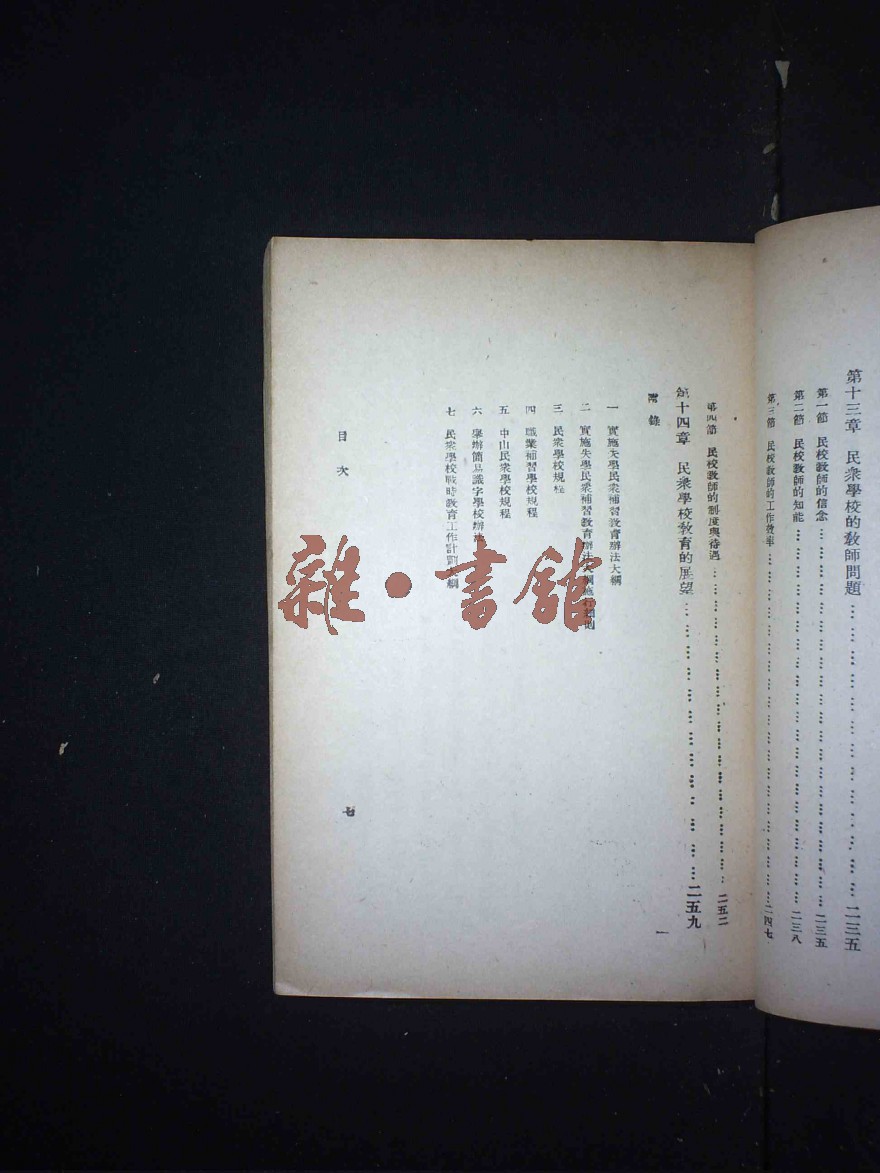 第十三章 民衆學校的教師問題……二三五
第一節 民校教師的信念……二三五
第二節 民校教師的知能……二三八
第三節 民校教師的工作效率……二四七
第四節 民校教師的制度與待遇……二五二
第十四章 民衆學校教育的展望……二五九
附錄 一
一 實施失學民衆補習教育辦法大綱
二 實施失學民衆補習教育辦法大綱施行細則
三 民衆學校規程
四 職業補習學校規程
五 中山民衆學校規程
六 舉辦簡易識字學校辦法
七 民衆學校戰時教育工作計劃大綱
目次
七
雜·書館